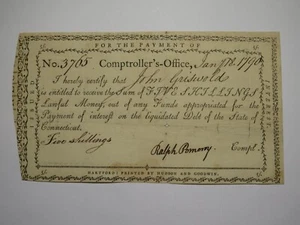 FOR THE PAYMENT OF
No. 3765 Comptroller's-Office, Jan 1790
I hereby certify that John Griswold
is entitled to receive the Sum of FIVE SHILLINGS
Lawful Money, out of any Funds appropriated for the
Payment of interest on the liquidated Debt of the State of
Connecticut.
Five Shillings
Ralph Pomeroy Compt.
HARTFORD: PRINTED BY HUDSON AND GOODWIN.